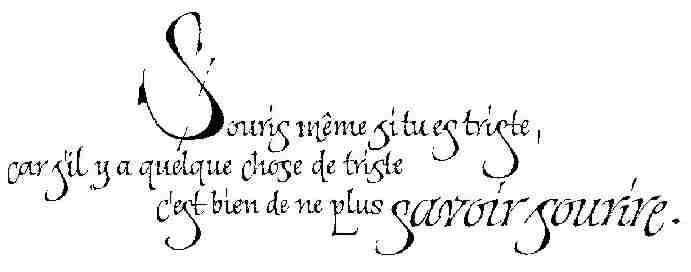 Souris même si tu es triste,
car s'il y a quelque chose de triste
c'est bien de ne plus savoir sourire.